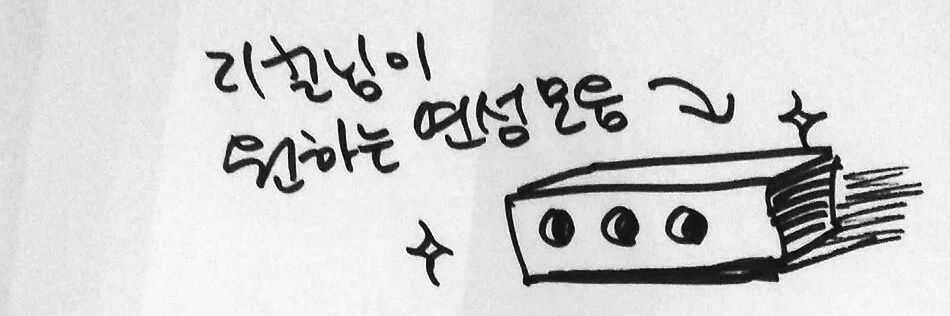 리퀘님이
원하는 연성모음